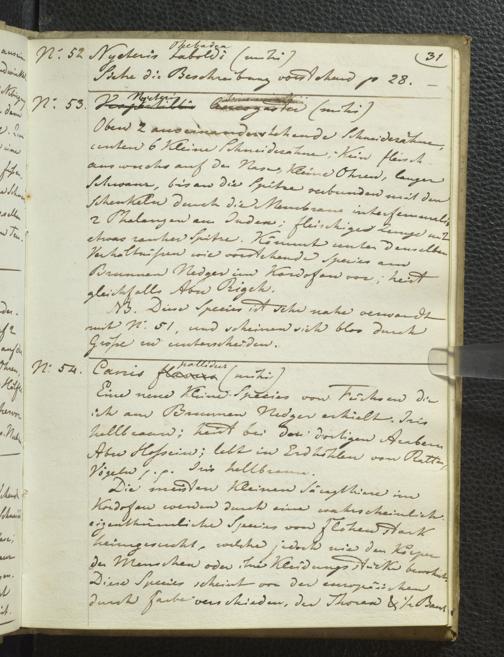 31
No. 52 Nycteris Thebaica
labordi (mihi)
Siehe die Beschreibung vorstehend p 28. —
No. 53. Nycteris (mihi)
Oben 2 auseinanderstehende Schneidezähne,
unten 6 kleine Schneidezähne; Kein fleisch
auswuchs auf der Nase, kleine Ohren, langer
Schwanz, bis an die Spitze verbunden mit den
Schenkeln durch die Membrana interfemoralis
2 Phalangen am Index. fleischige Zunge mit
etwas rauher Spitze. Kömmt unter denselben
Verhältnissen wie vorstehende Species am
Brunnen Nedger im Kordofan vor; heist
gleichfalls Abu Rigeh.
NB. Diese Species ist sehr nahe verwandt
mit No. 51, und scheinen sich blos durch
Größe zu unterscheiden.
No. 54. Canis pallidus (mihi)
Eine neue kleine Species von Füchsen die
ich am Brunnen Nedger erhielt. Iris
hellbraun; heist bei den dortigen Arabern
Abu Hossein; lebt in Erdhöhlen von Ratten,
Vögeln p. p. Iris hellbraun.
Die meisten kleinen Säugthiere im
Kordofan werden durch eine wahrscheinlich
eigenthümliche Species von Flöhen stark
heimgesucht, welche jedoch nie den Körper
des Menschen oder Kleidungsstücke bewohnt.
Diese Species scheint von der europäischen
durch Farbe verschieden, der Thorax & 1/2